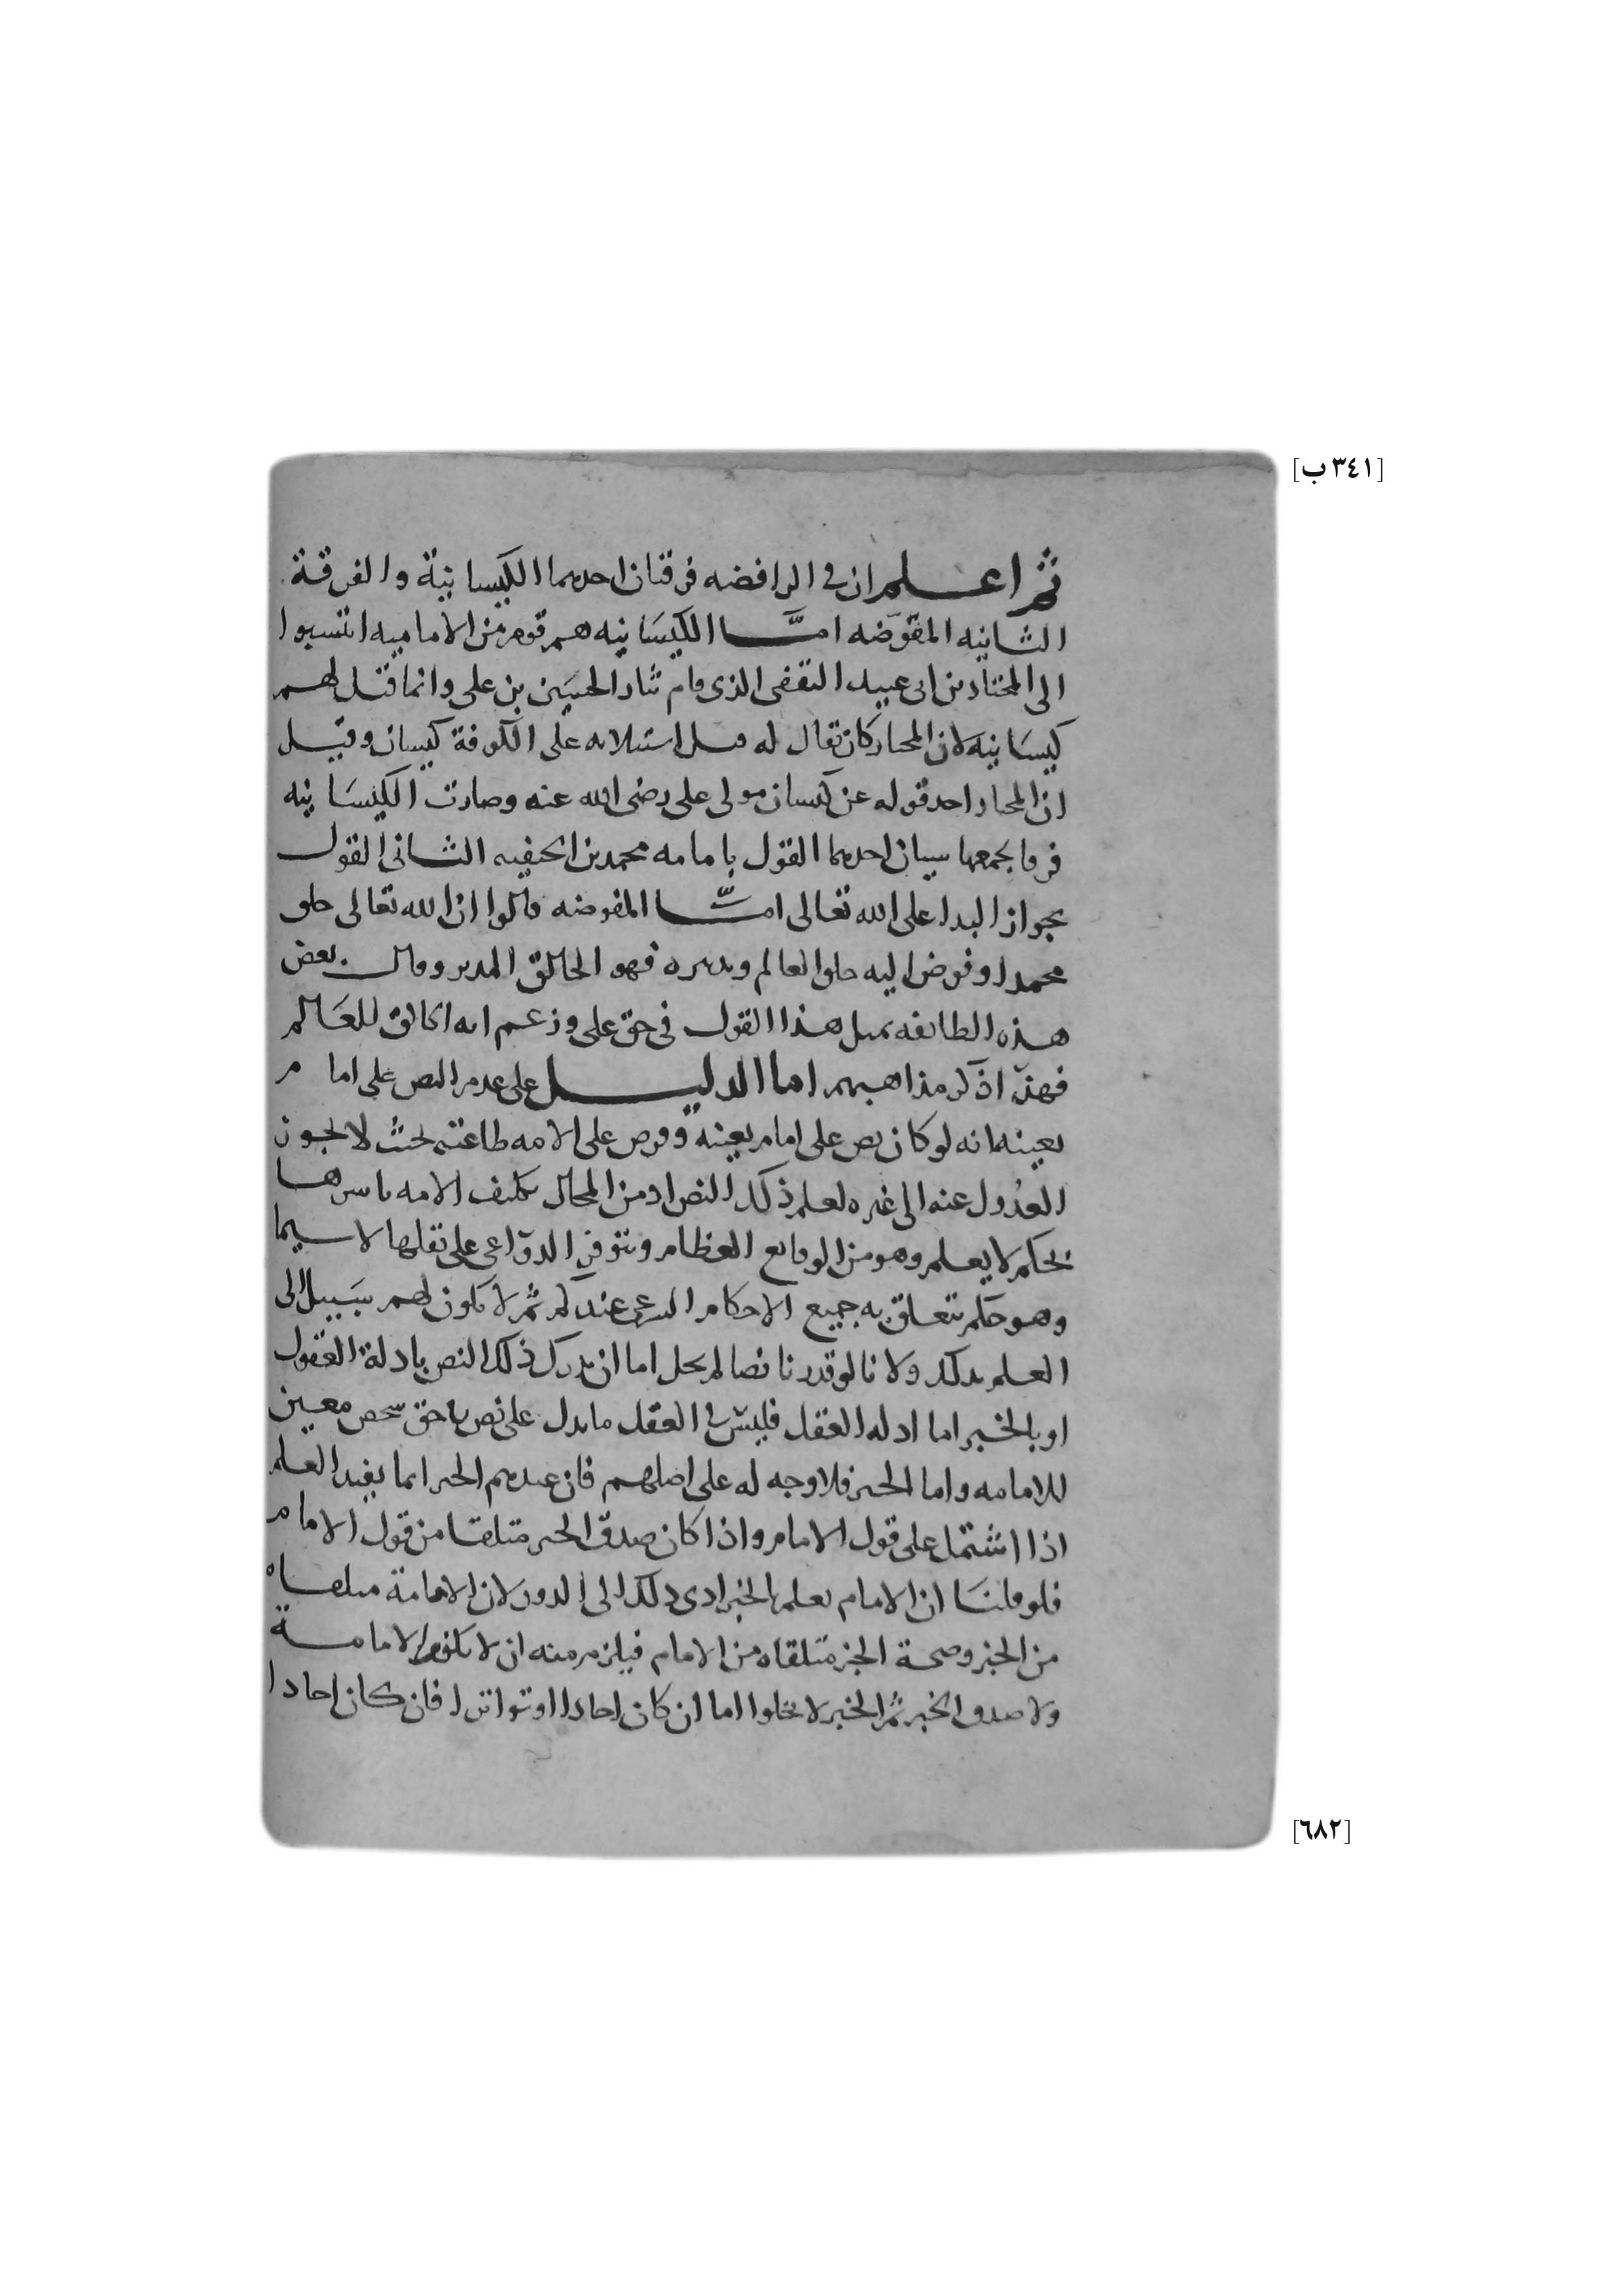 [٣٤١ ب]
ثم اعلم ان في الرافضه فرقتان احدهما الكيسانية والفرقة
الثانيه المفوضه امّا الكيسَانيه هم قوم من الاماميه انتسبوا
الى المختار بن ابي عبيد الثقفي الذي قام بثار الحسَين بن علي وانما قيل لهم
كيسَانيه لان المختار كان يقال له قبل استيلائه على الكوفة كيسان وقيل
ان المختار اخذ قوله عن كيسان مولى علي رضى الله عنه وصارت الكيسَانيه
فرقا يجمعها سيان احدهما القول بامامه محمد بن الحنفيه الثاني القول
بجواز البدا على الله تعالى امّا المفوضه قالوا ان الله تعالى خلق
محمدا وفوض اليه خلق العالم وتدبيره فهو الخالق المدبر وقال بعض
هذه الطائفه بمثل هذا القول في حق علي وزعم انه الخالق للعَالم
فهذا ذكر مذاهبهم اما الدليل على عدم النص على امام
بعينه انه لو كان نص على امام بعينه وفرض على الامه طاعته بحيث لا يجوز
العدُول عنه الى غيره لعلم ذلك النص اذ من المحال تكليف الامه باسرها
بحكم لا يعلم وهو من الوقايع العظام وتتوفر الدوَاعي على نقلها لا سيما
وهو حكم يتعلق به جميع الاحكام الشرعي عندكم ثم لا يكون لهم سَبيل الى
العلم بذلك ولانا لو قدرنا نصا لم يخل اما ان يدرك ذلك النص بادلة العقول
او بالخبر اما ادله العقل فليسَ في العقل ما يدل على نص في حق شخص معين
للامامه واما الخبر فلا وجه له على اصلهم فان عندهم الخبر انما يفيد العلم
اذا اشتمل على قول الامام واذا كان صدق الخبر متلقا من قول الامام
فلو قلنَا ان الامام يعلم بالخبر ادى ذلك الى الدور لان الامامة متلقاه
من الخبر وصحة الخبر متلقاه من الامام فيلزم منه ان لا يكون الامامة
ولا صدق الخبر ثم الخبر لا يخلوا اما ان كان احادا او تواترا فان كان احادا
[٦٨٢]